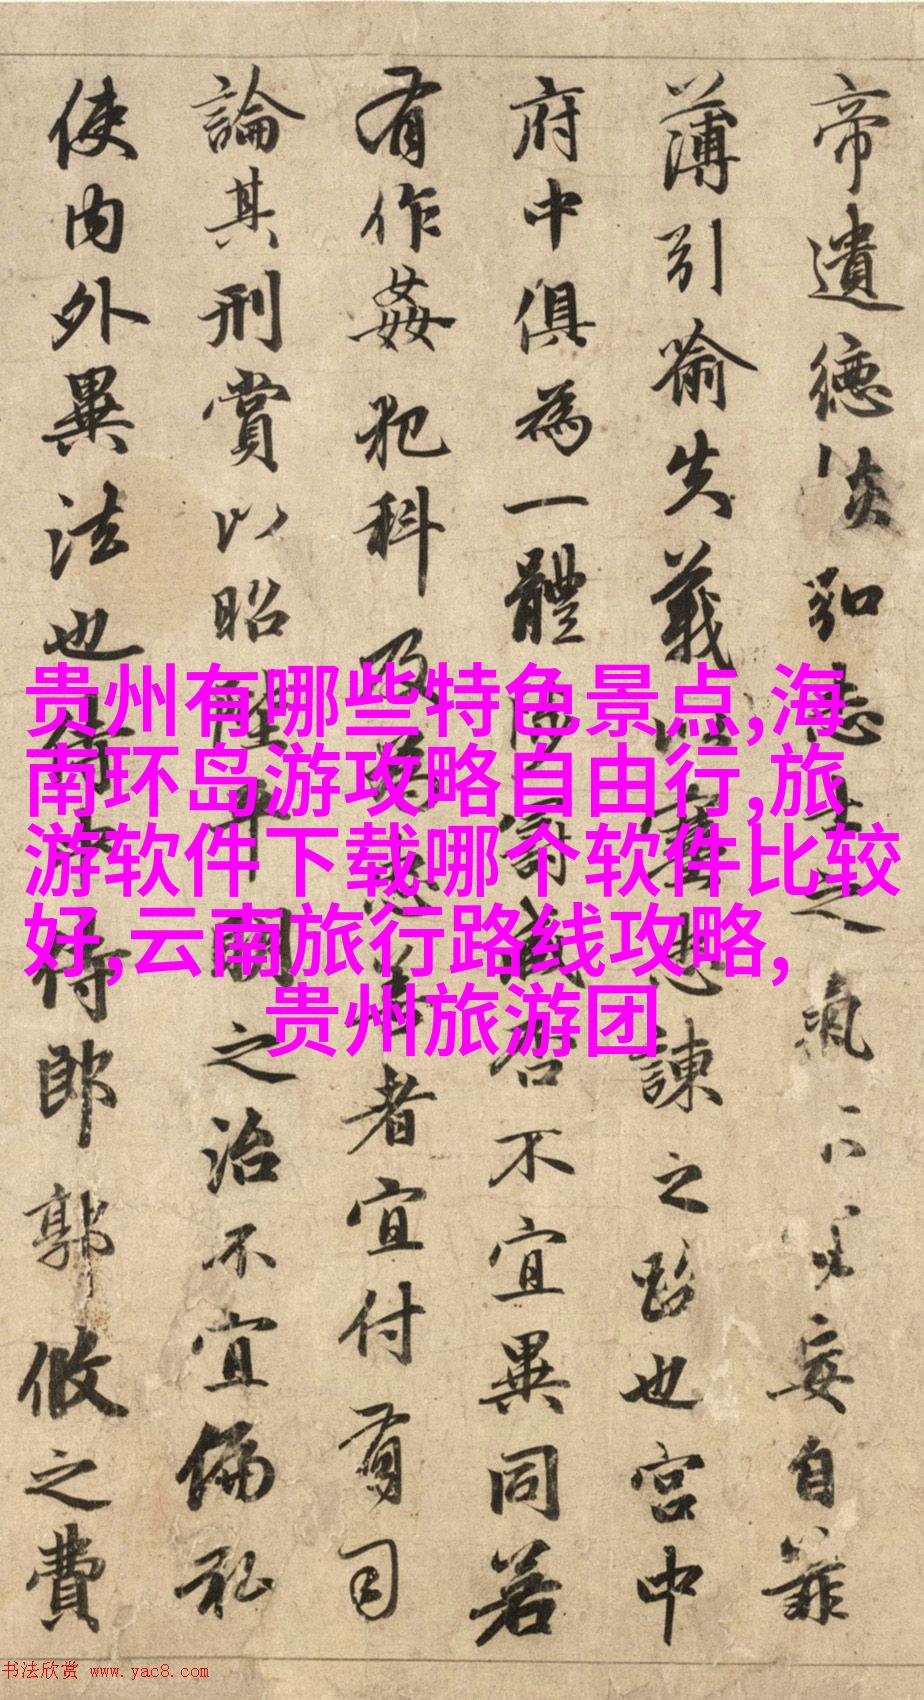 帝遺德恢弘志士之氣不宜妄自菲
薄引喻失義以塞忠諫之路也宮中
府中俱為一體陟罰臧否不宜異同若
有作姦犯科及為忠善者宜付有司
論其刑賞以昭陛平明之治不宜偏私
使內外異法也侍中侍郎郭攸之費
贵州有哪些特色景点,海
南环岛游攻略自由行,旅
游软件下载哪个软件比较
好,云南旅行路线攻略,
贵州旅游团
书法欣赏 www.yac8.com